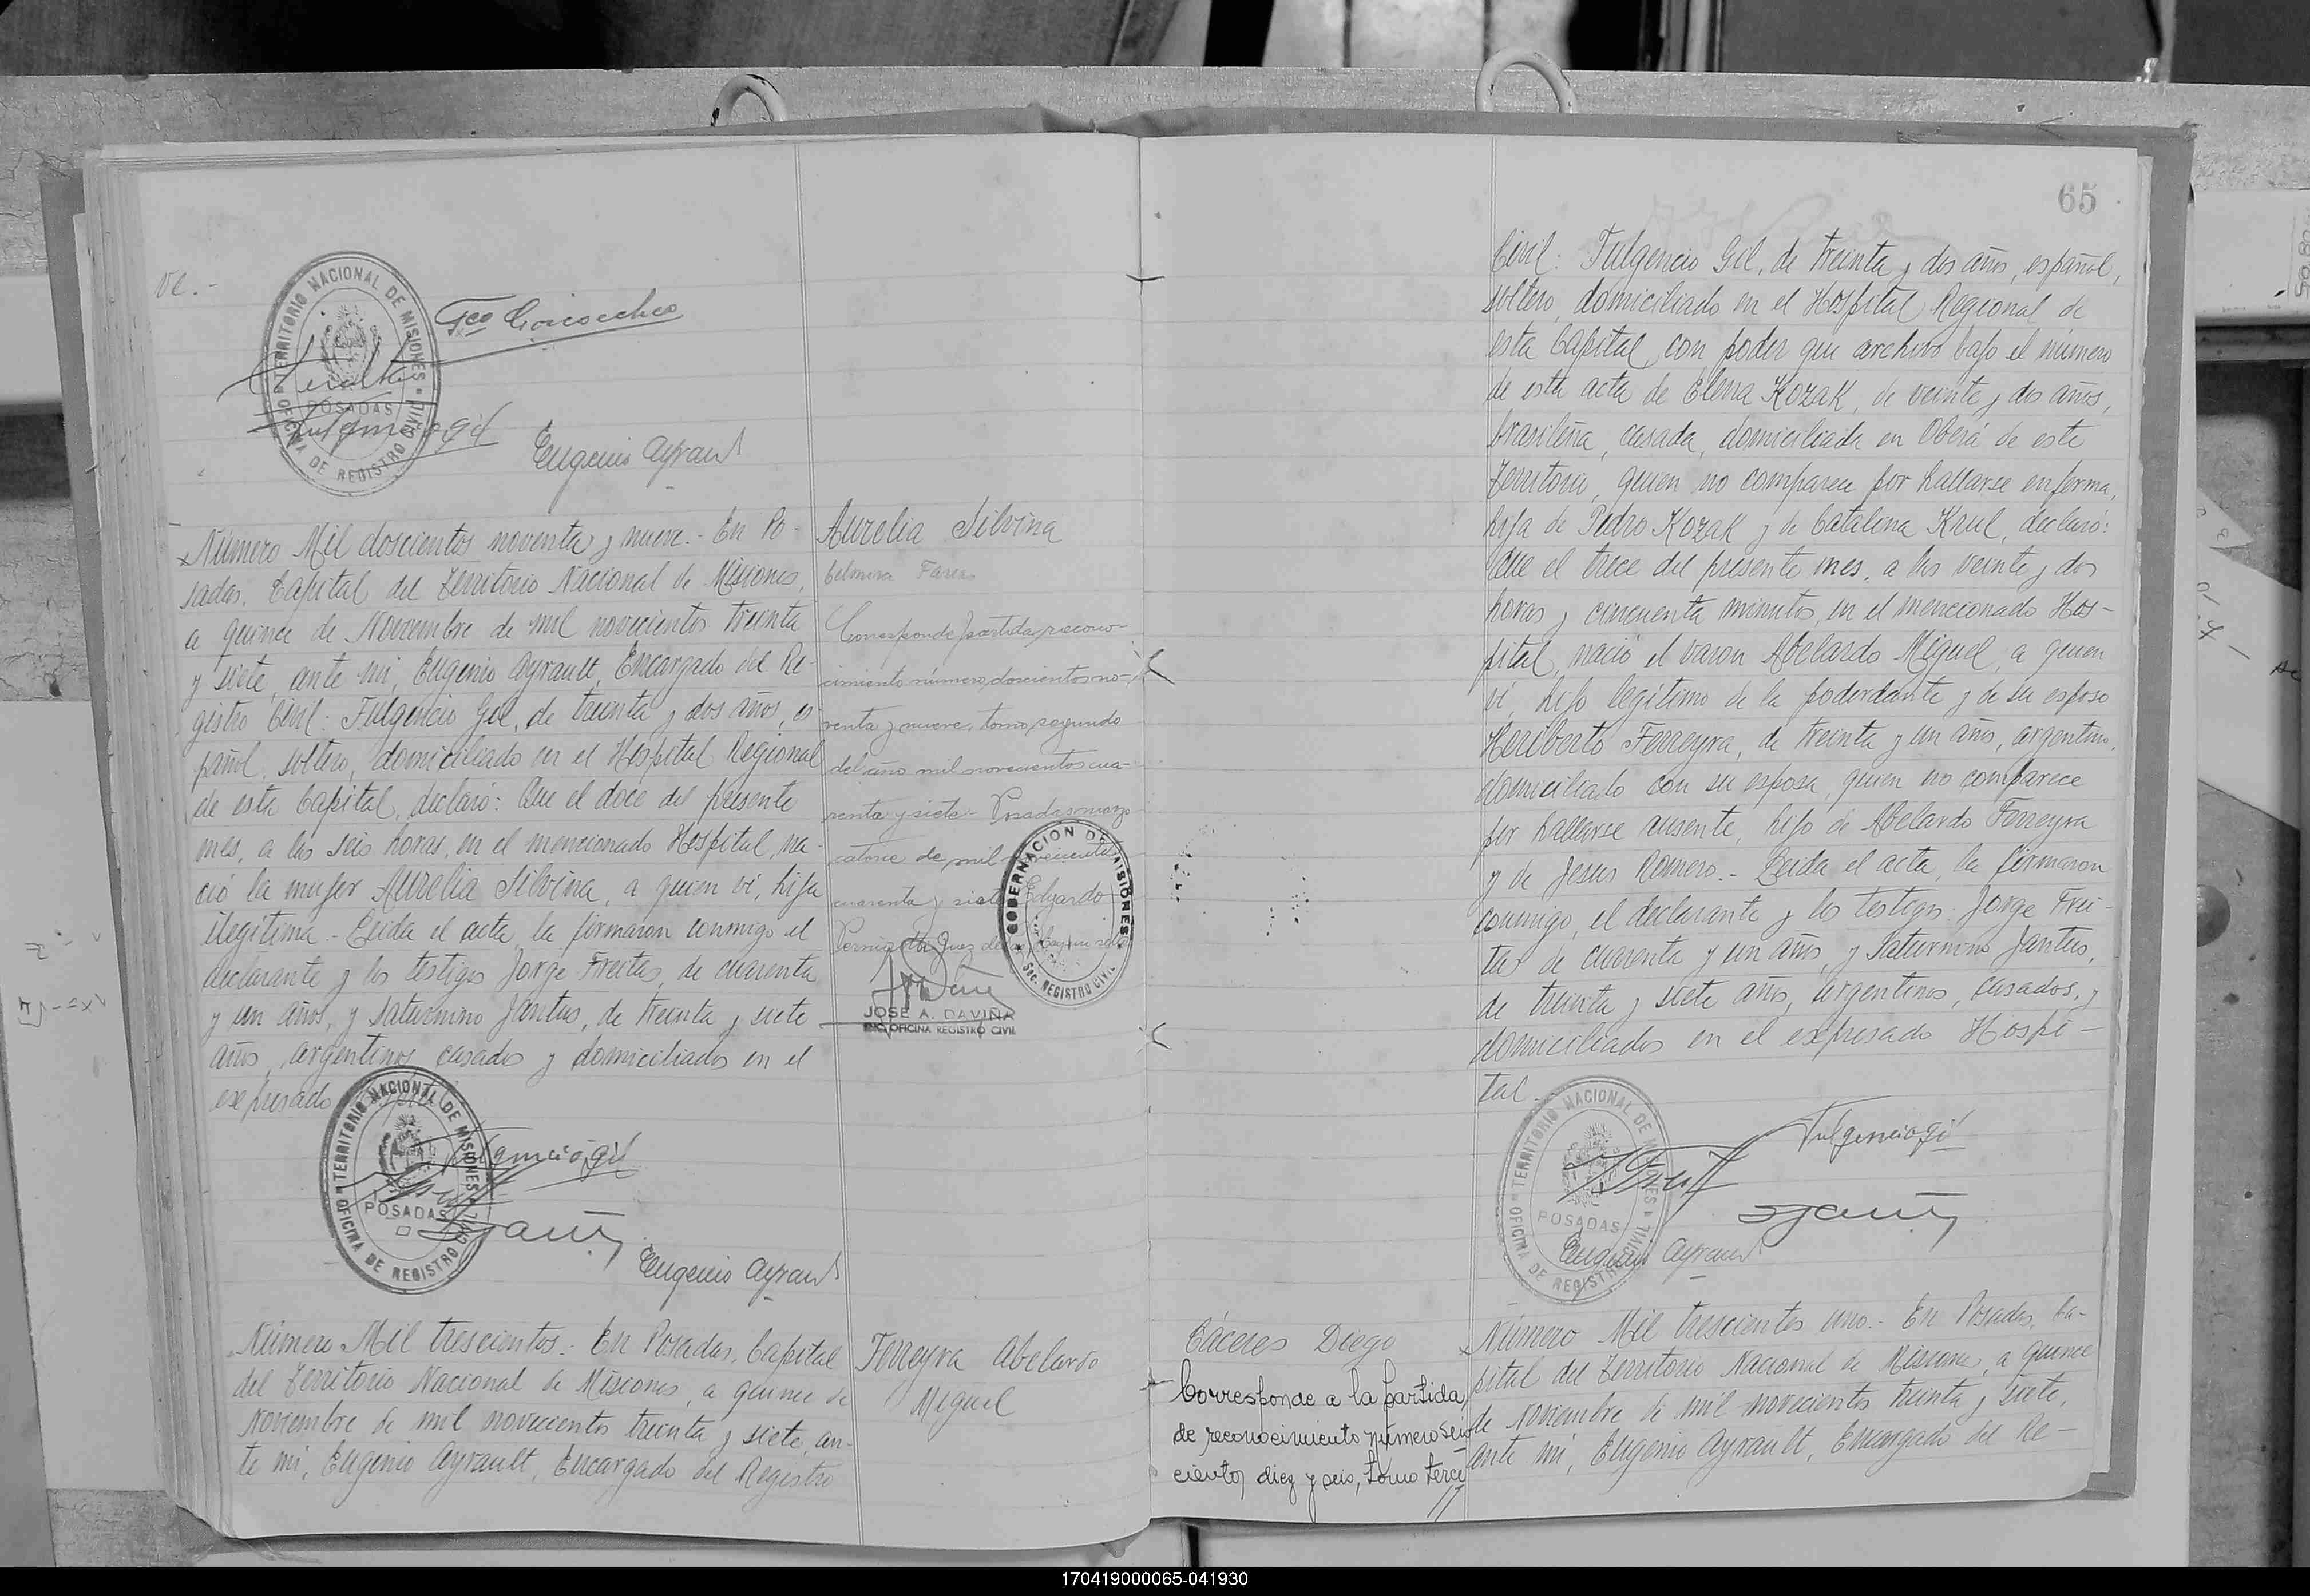 ve.-
TERRITORIO NACIONAL DE MISIONES
POSADAS
OFICINA DE REGISTRO CIVIL
Fco Goicoechea
Peralta
Fulgencio Gil
Eugenio Ayrault
Número Mil doscientos noventa y nueve.- En Po-
sadas, Capital del Territorio Nacional de Misiones,
a quince de Noviembre de mil novecientos treinta
y siete, ante mí, Eugenio Ayrault, Encargado del Re-
gistro Civil: Fulgencio Gil, de treinta y dos años, es
pañol, soltero, domiciliado en el Hospital Regional
de esta Capital, declaró: Que el doce del presente
mes, a las seis horas, en el mencionado Hospital, na-
ció la mujer Aurelia Silvina, a quien ví, hija
ilegítima.- Leida el acta, la firmaron conmigo el
declarante y los testigos Jorge Freitas, de cuarenta
y un años, y Saturnino Jantus, de treinta y siete
años, argentinos, casados y domiciliados en el
expresado Hospital
TERRITORIO NACIONAL DE MISIONES
POSADAS
OFICINA DE REGISTRO CIVIL
Fulgencio Gil
Eugenio Ayrault
Aurelia Silvina
Celmira Farias
Corresponde partida recono-
cimiento número doscientos no-
venta y nueve, tomo segundo
del año mil novecientos cua-
renta y siete.- Posadas marzo
catorce de mil novecientos
cuarenta y siete Edgardo
GOBERNACION DE MISIONES
Sec. REGISTRO CIVIL
JOSE A. DAVIÑA
OFICINA REGISTRO CIVIL
Número Mil trescientos.- En Posadas, Capital
del Territorio Nacional de Misiones, a quince de
Noviembre de mil novecientos treinta y siete, an-
te mí, Eugenio Ayrault, Encargado del Registro
Ferreyra Abelardo
Miguel
65
Civil: Fulgencio Gil, de treinta y dos años, español,
soltero, domiciliado en el Hospital Regional de
esta Capital, con poder que archivo bajo el número
de esta acta de Elena Kozak, de veinte y dos años,
brasileña, casada, domiciliada en Oberá de este
Territorio, quien no comparece por hallarse enferma,
hija de Pedro Kozak y de Catalina Kaul, declaró:
Que el trece del presente mes, a las veinte y dos
horas y cincuenta minutos, en el mencionado Hos-
pital, nació el varon Abelardo Miguel, a quien
ví, hijo legítimo de la poderdante y de su esposo
Heriberto Ferreyra, de treinta y un año, argentino,
domiciliado con su esposa, quien no comparece
por hallarse ausente, hijo de Abelardo Ferreyra
y de Jesus Romero.- Leida el acta, la firmaron
conmigo, el declarante y los testigos: Jorge Frei-
tas de cuarenta y un años, y Saturnino Jantus,
de treinta y siete años, argentinos, casados, y
domiciliados en el expresado Hospi-
tal.-
TERRITORIO NACIONAL DE MISIONES
POSADAS
OFICINA DE REGISTRO CIVIL
Fulgencio Gil
Eugenio Ayrault
Cáceres Diego
Corresponde a la partida
de reconocimiento número seis
cientos diez y seis, tomo terce
Número Mil trescientos uno.- En Posadas, Ca-
pital del Territorio Nacional de Misiones, a quince
de Noviembre de mil novecientos treinta y siete,
ante mí, Eugenio Ayrault, Encargado del Re-
170419000065-041930